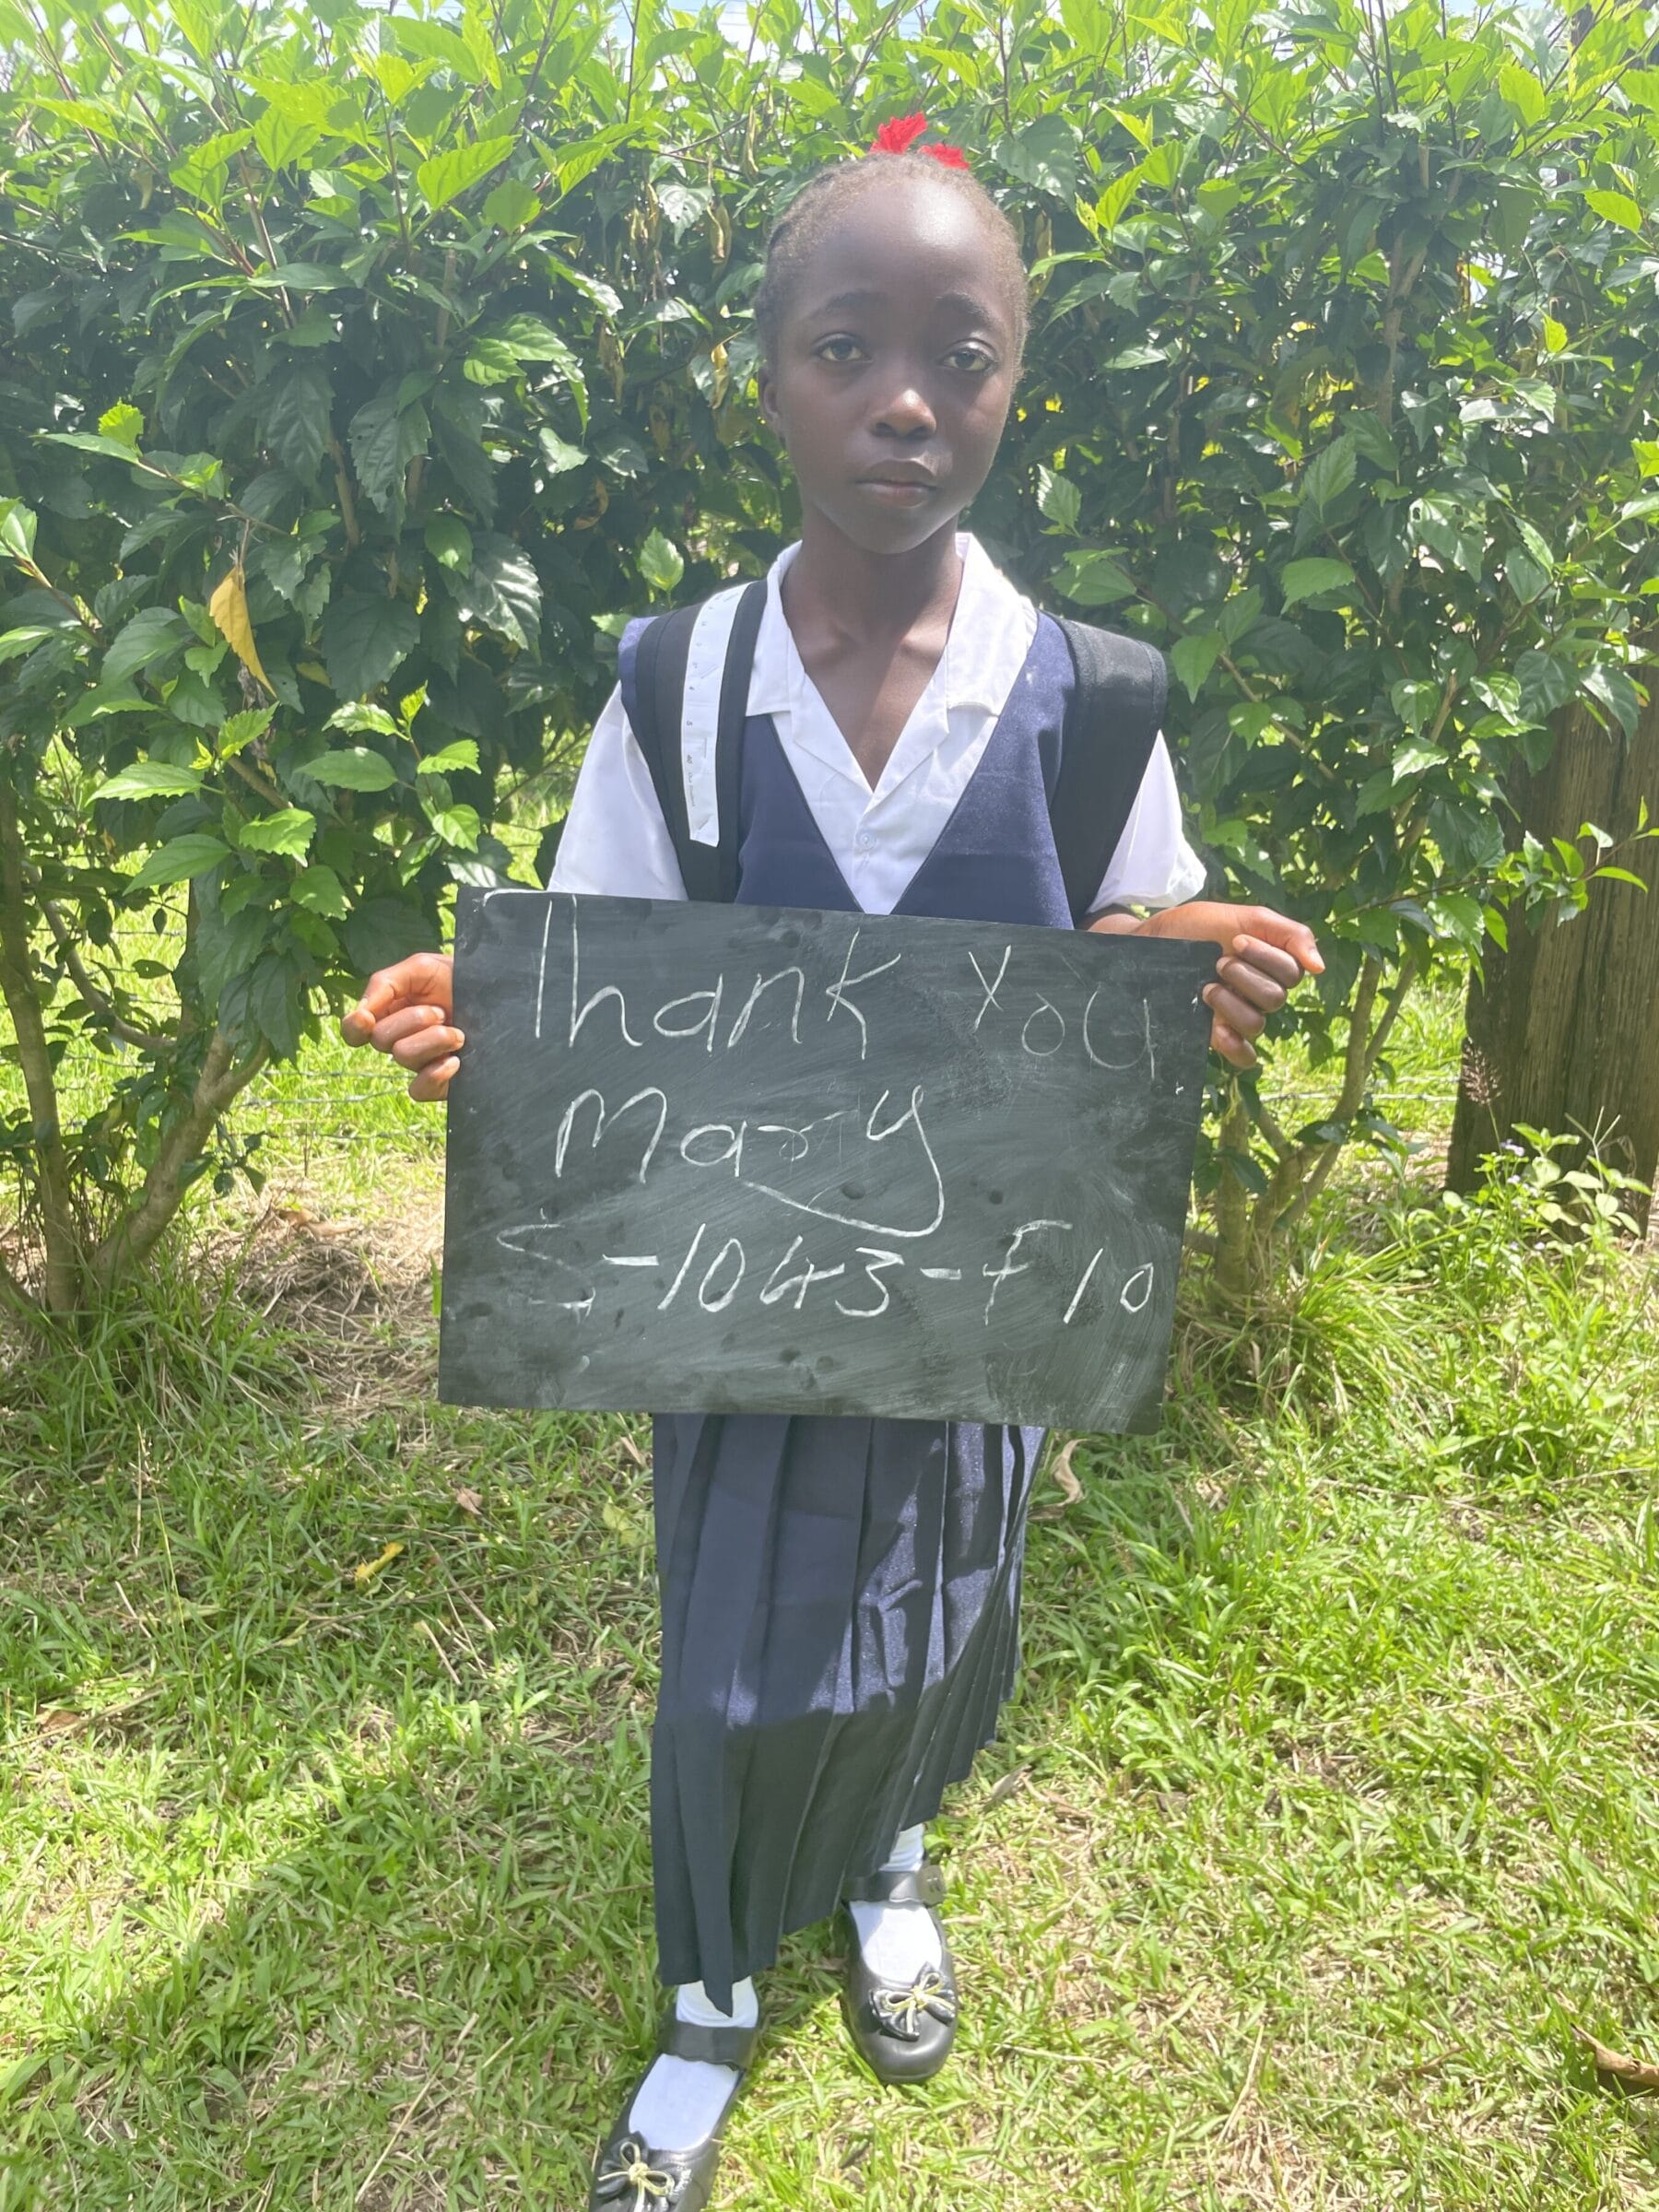 Thank You
Mary
S-1043-F10